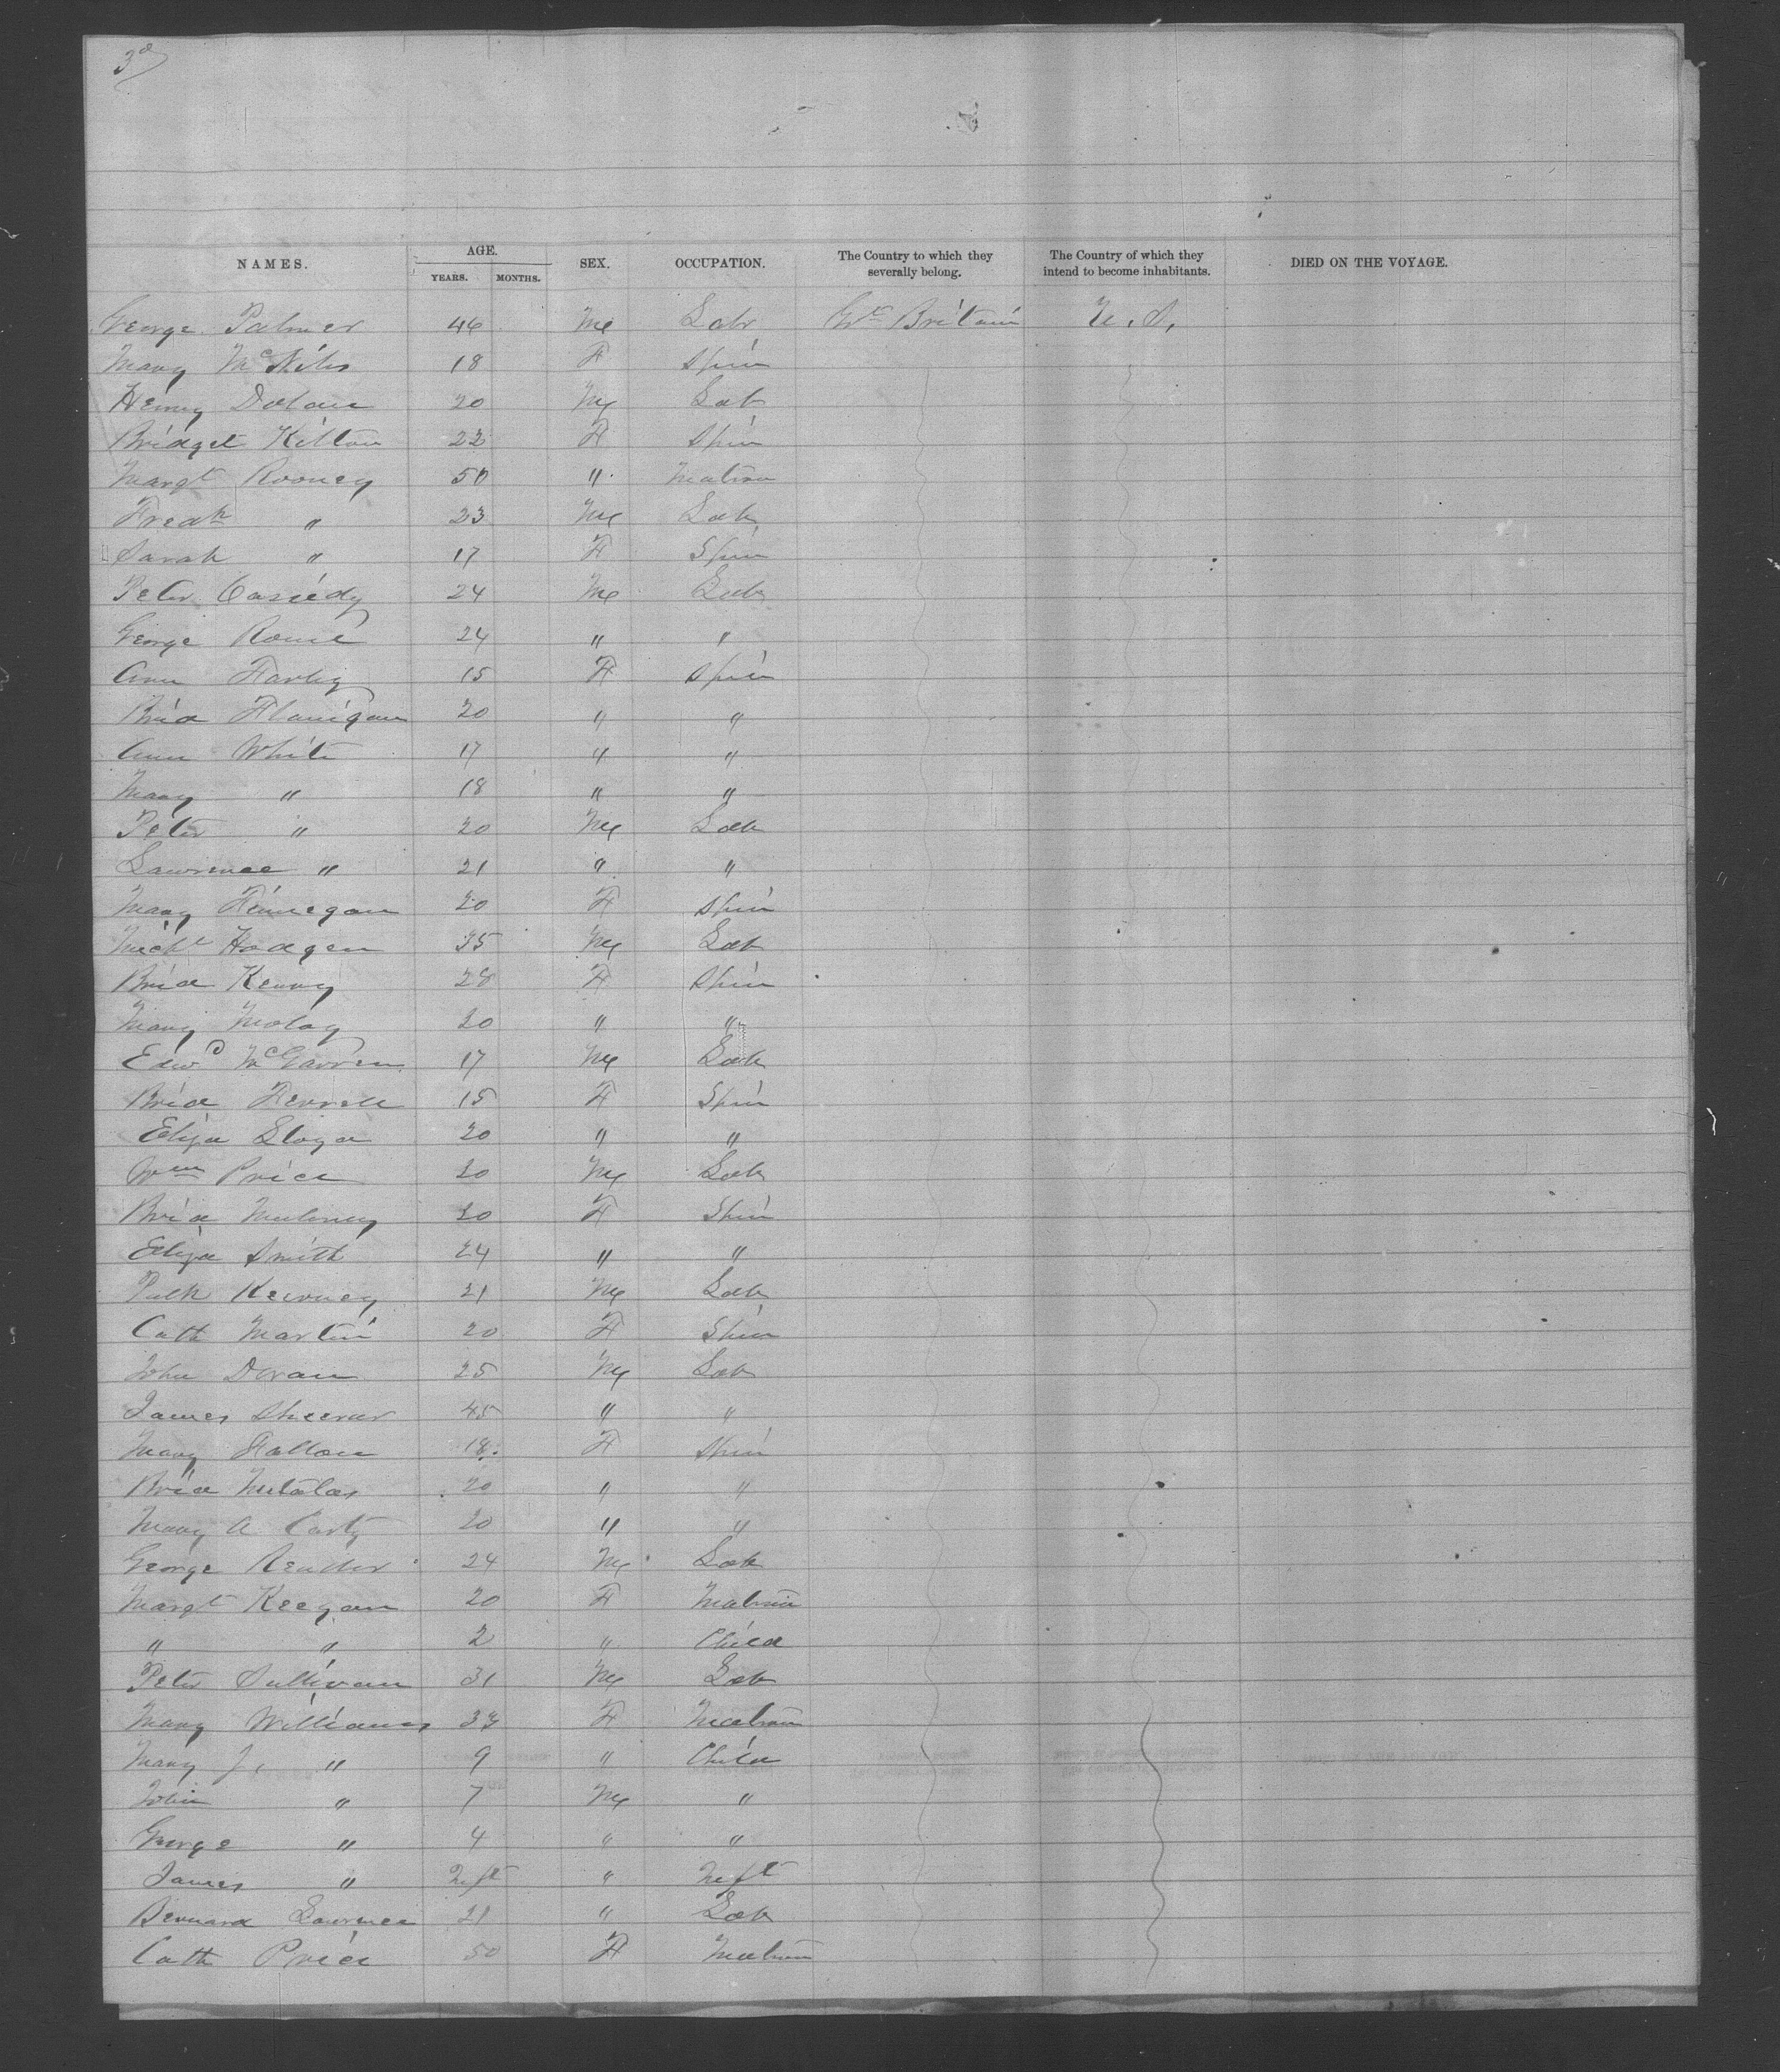 3d
NAMES. AGE. YEARS. MONTHS. SEX. OCCUPATION. The Country to which they severally belong. The Country of which they intend to become inhabitants. DIED ON THE VOYAGE.
George Palmer 46 M Labr Gt Britain U.S.
Mary 18 F Spin
Henry Dolan 20 M Lab
Bridget Kilton 22 F Spin
Margt Rooney 50 " Matron
Fredk " 23 M Lab
Sarah " 17 F Spin
Peter Cassedy 24 M Lab
George 24 " "
Ann Farley 15 F Spin
Brid Flanigan 20 " "
Ann White 17 " "
Mary " 18 " "
Peter " 20 M Lab
Lawrence " 21 " "
Mary Finnegan 20 F Spin
Michl Hodgen 35 M Lab
Brid Kenny 28 F Spin
Mary Moloy 20 " "
Edwd McGarren 17 M Lab
Brid Ferrell 15 F Spin
Eliza 20 " "
Wm Price 20 M Lab
Brid Mulvney 20 F Spin
Eliza Smith 24 " "
Patk Kearney 21 M Lab
Cath Martin 20 F Spin
John Doran 25 M Lab
James Sheerar 45 " "
Mary Fallon 18 F Spin
Brid 20 " "
Mary A Carty 20 " "
George Reader 24 M Lab
Margt Keegan 20 F Matron
" " 2 " Child
Peter Sullivan 31 M Lab
Mary Williams 33 F Matron
Mary J. " 9 " Child
John " 7 M "
George " 4 " "
James " Inft " Inft
Bernard Lawrence 21 " Lab
Cath Price 50 F Matron